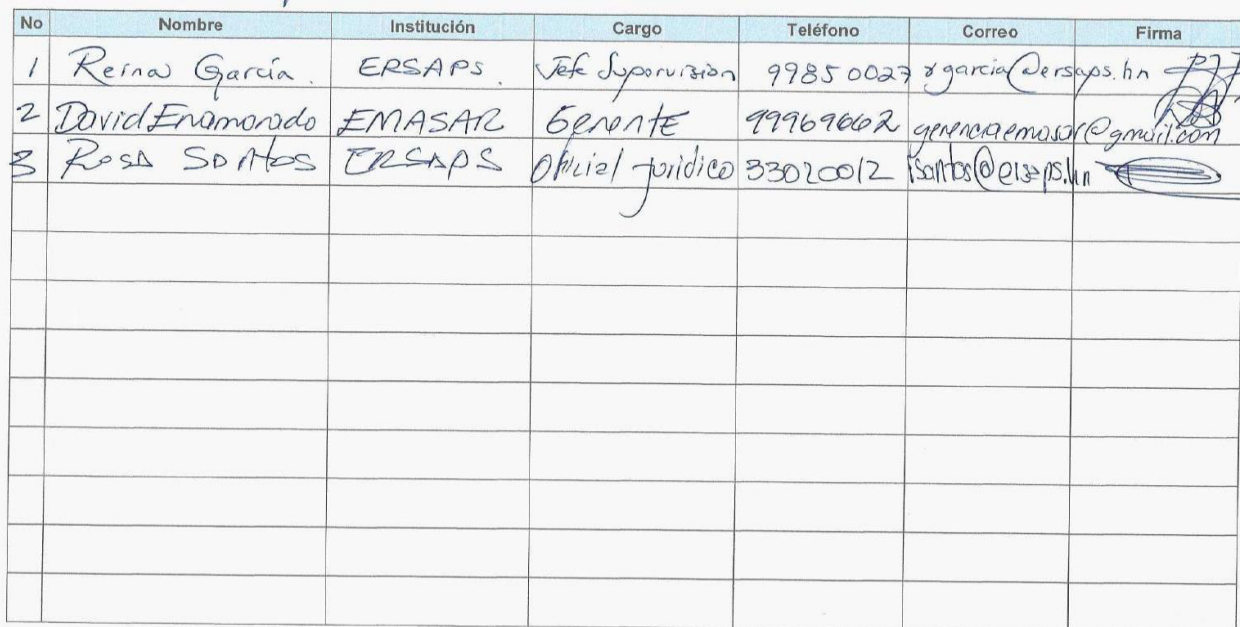 No Nombre Institución Cargo Teléfono Correo Firma
1 Reina García. ERSAPS. Jefe Supervisión 99850027 rgarcia@ersaps.hn
2 David Enamorado EMASAR Gerente 99969662 gerenciaemasar@gmail.com
3 Rosa Santos ERSAPS Oficial jurídico 33020012 rsantos@ersaps.hn